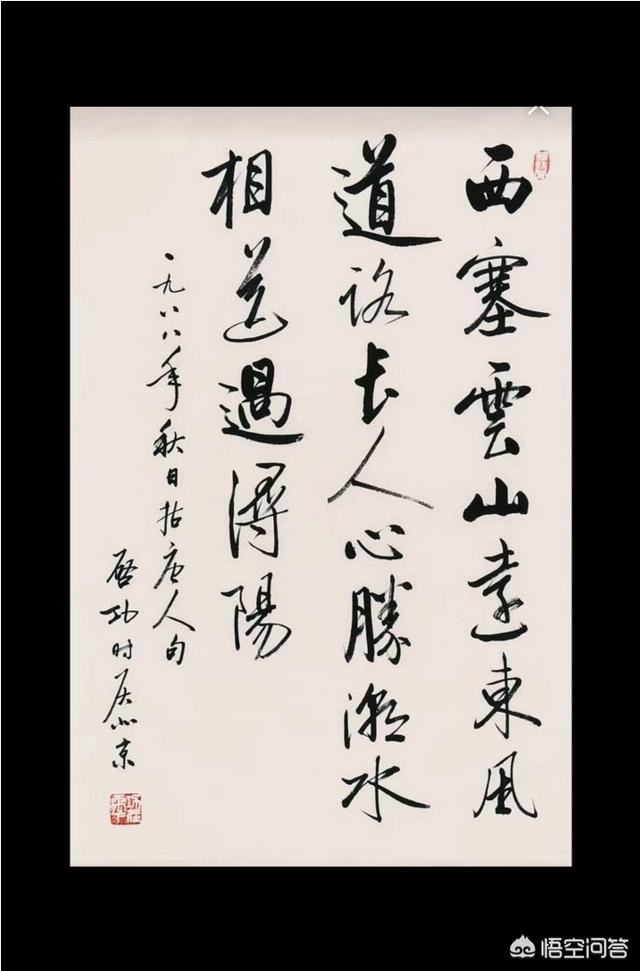 西塞雲山遠東風
道路长人心勝潮水
相送過潯陽
一九八八年秋日拈唐人句
啓功时居北京
悟空问答